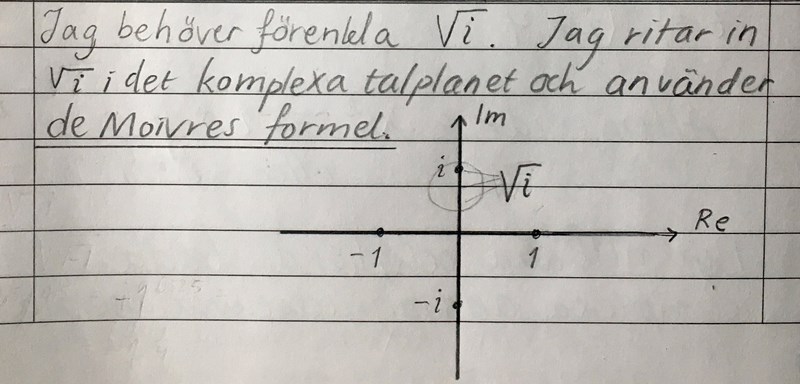 Jag behöver förenkla √i. Jag ritar in
√i i det komplexa talplanet och använder
de Moivres formel.
Im
i
√i
Re
-1
1
-i